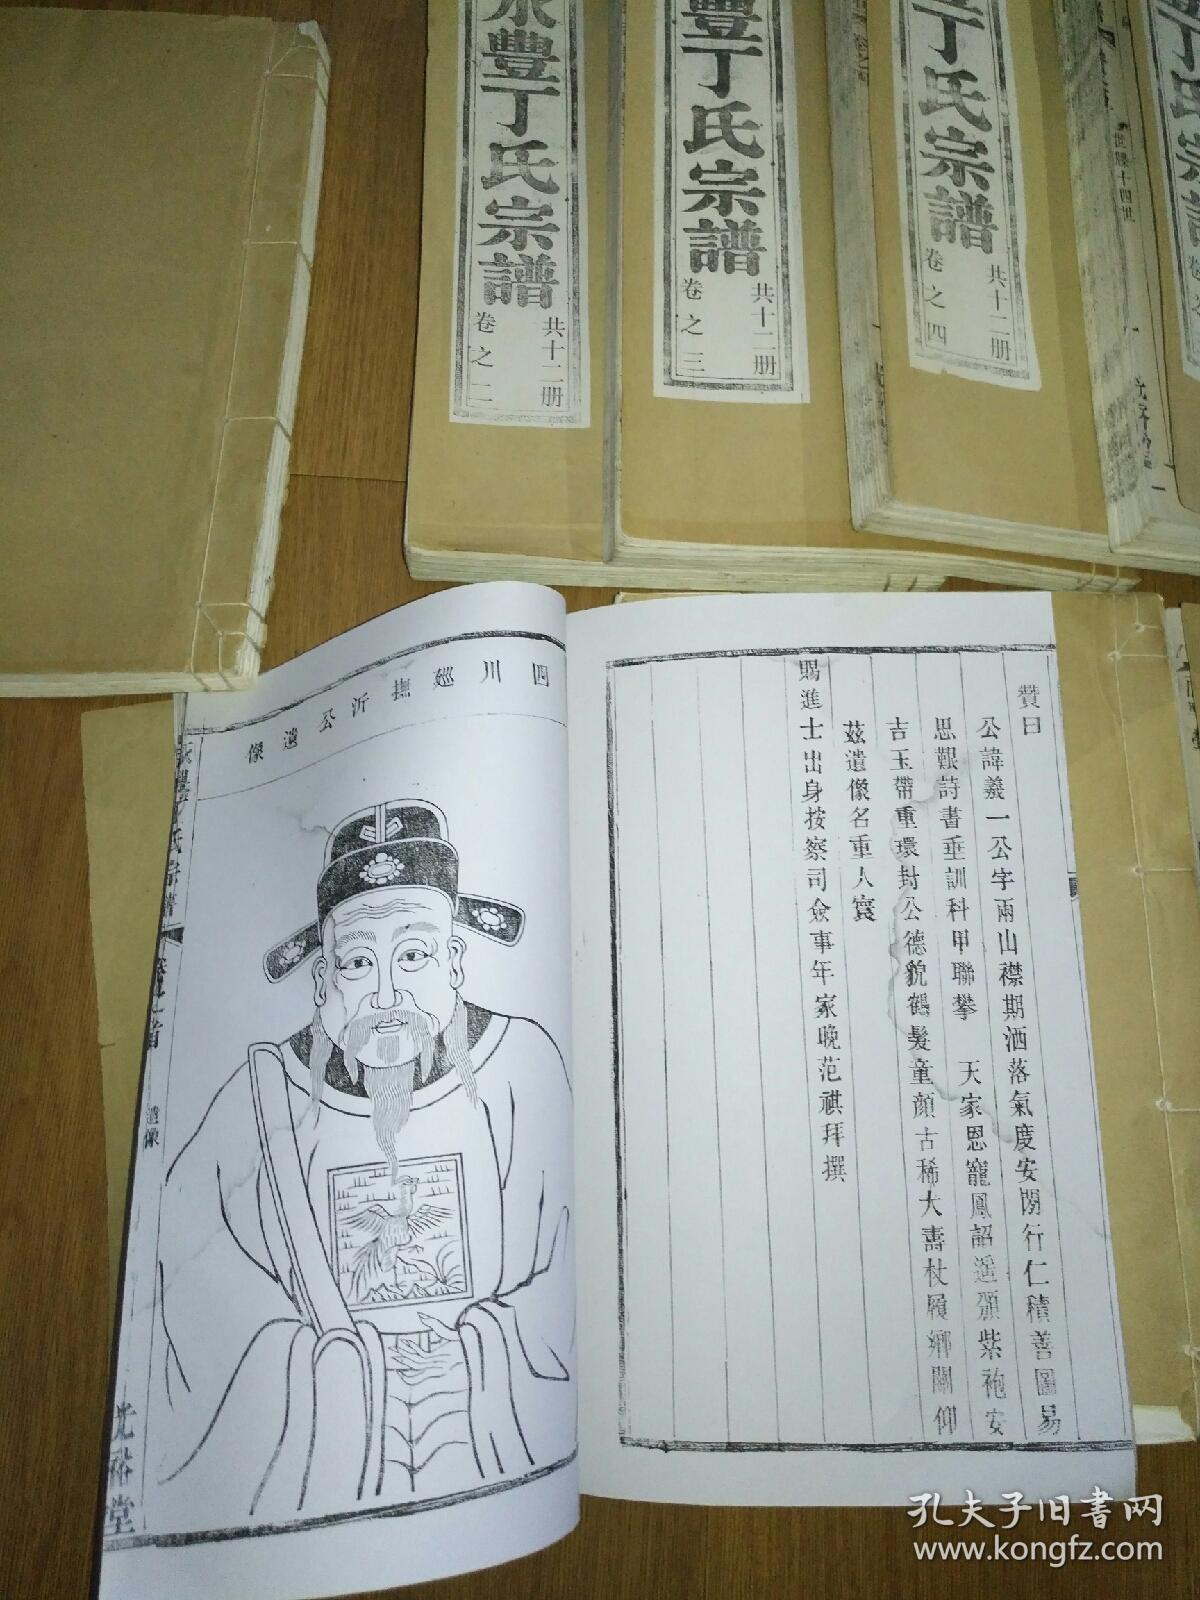 永豐丁氏宗譜
共十二册
卷之二
豐丁氏宗譜
共十二册
卷之三
丁氏宗譜
共十二册
卷之四
丁氏宗譜
四川巡撫沂公遺像
遺像
光裕堂
贊曰
公諱義一公字雨山襟期洒落氣度安閒行仁積善圖易
思艱詩書垂訓科甲聯攀 天家恩寵鳳詔遥頒紫袍安
吉玉帶重環封公德貌鶴髮童顔古稀大壽杖履鄉關仰
茲遺像名重人寰
賜進士出身按察司僉事年家晚范祺拜撰
孔夫子旧书网
www.kongfz.com